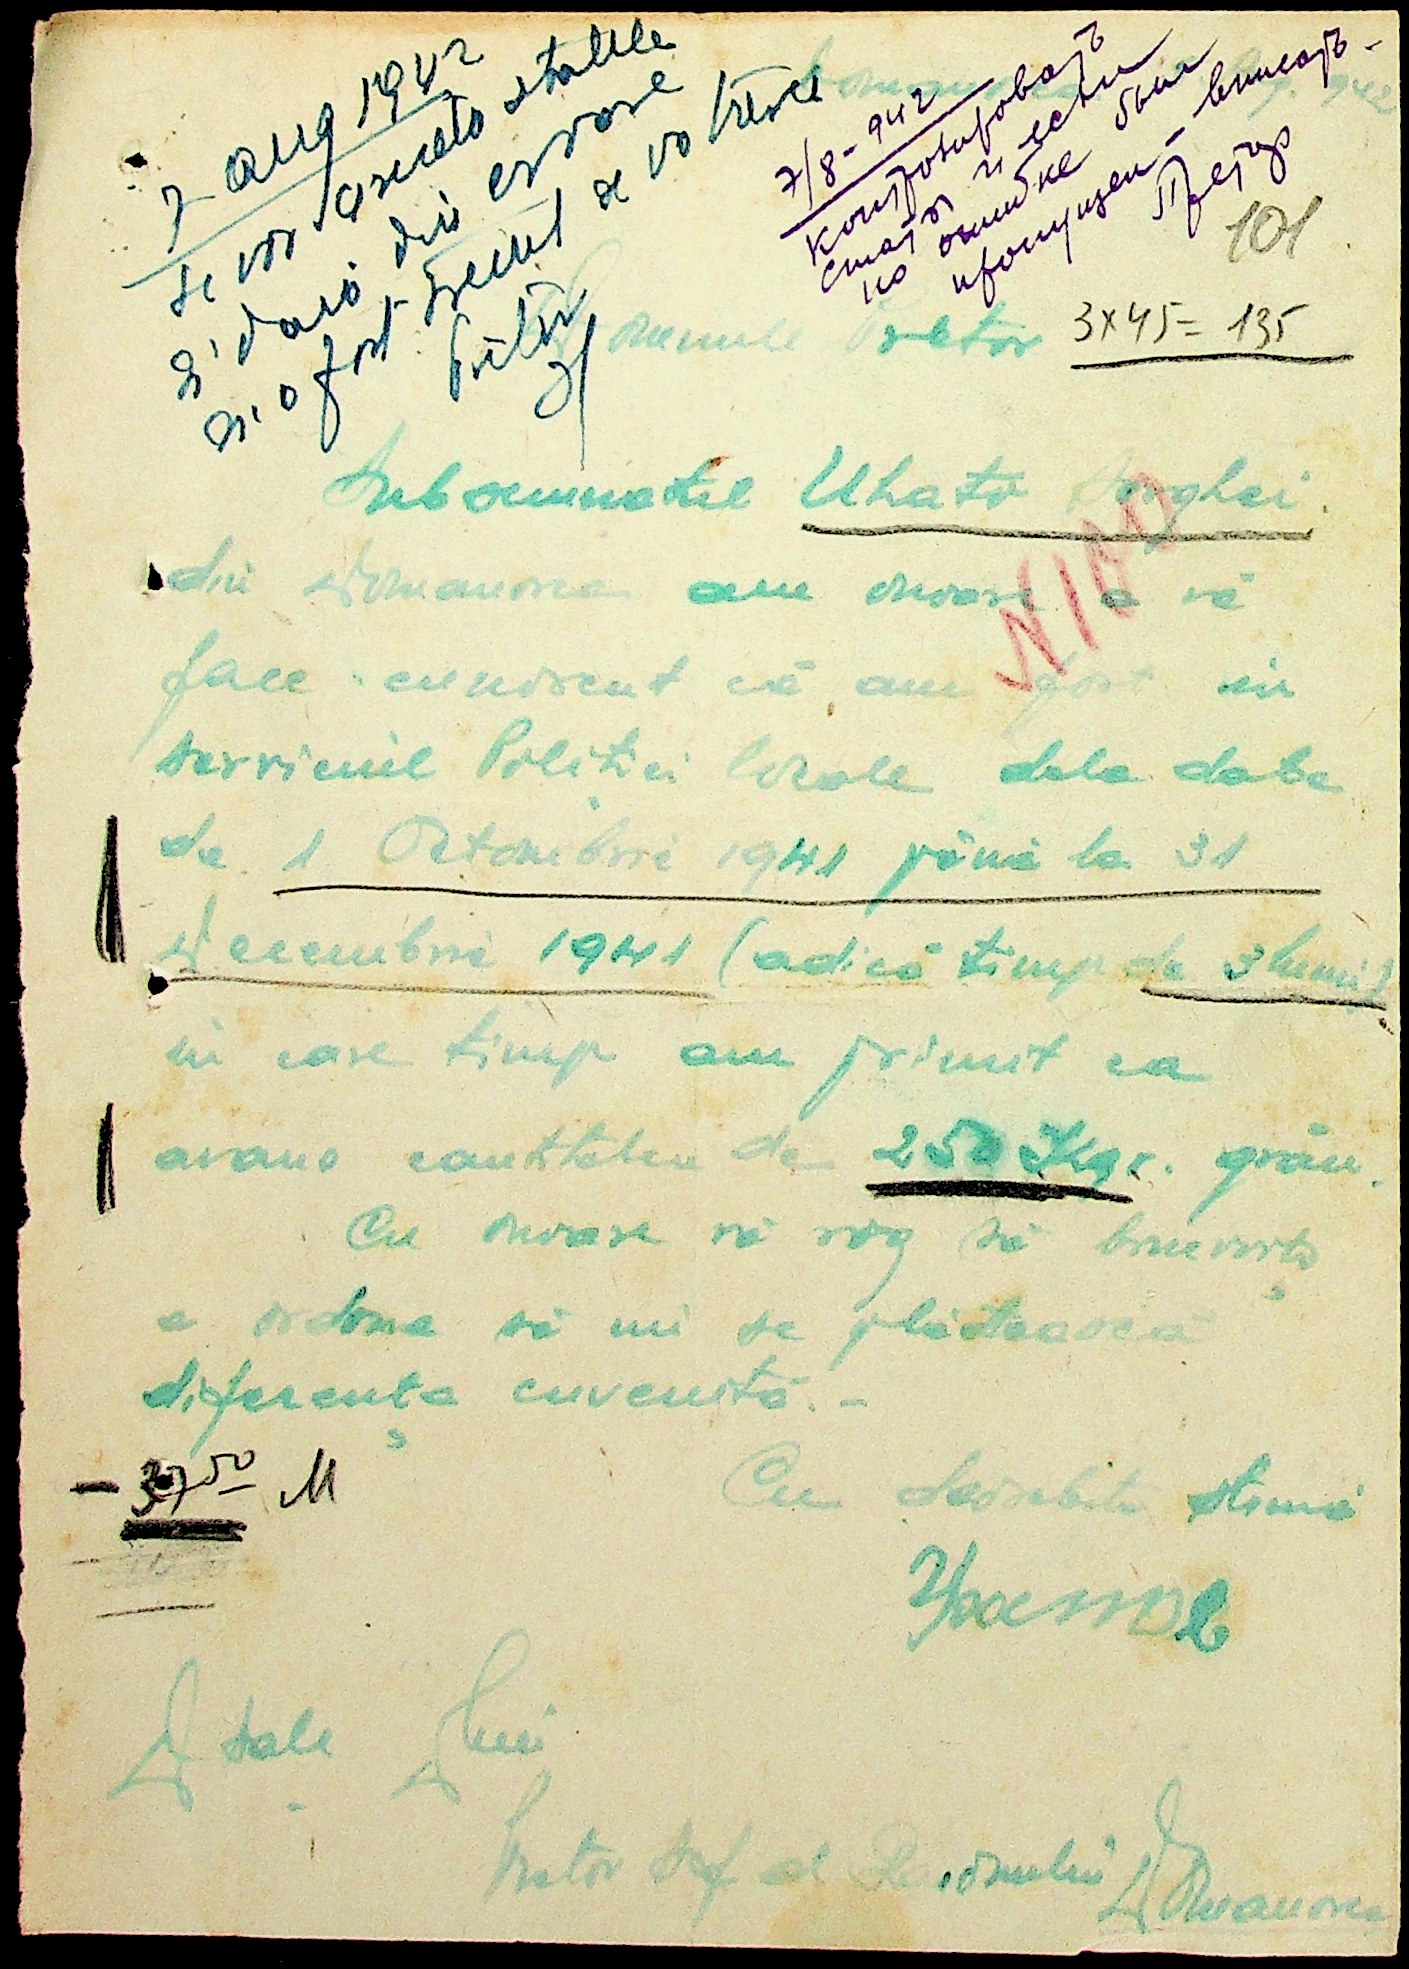 7 aug 1942
Se vor cerceta statele
și dacă din eroare
nu a fost trecut se va trece
Pretor
7/8 - 942
Контролировать
статы и если
по ошибке был
пропущен - вписать -
Претор
942
101
Domnule Pretor
3x45= 135
Subsemnatul Uhatov Serghei
din Domanovca am onoare a vă
face cunoscut că am fost in
serviciul Poliției locale dela data
de 1 Octombrie 1941 până la 31
Decembrie 1941 (adică timp de 3 luni)
in care timp am primit ca
avans cantitatea de 250 Kgr. grâu.
Cu onoare vă rog să binevoiți
a ordona să mi se plătească
diferența cuvenită. -
- 37 50 M
Cu deosebită stimă
Ухатов
D sale Dlui
Pretor Șef al Raionului Domanovca